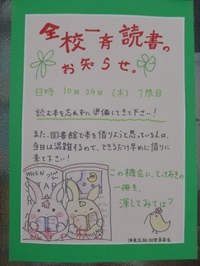 全校一斉読書の
お知らせ。
日時 10月24日(木) 1限目
読む本を忘れずに準備してきて下さい!
また、図書館で本を借りようと思っている人は、
当日は混雑するので、できるだけ早めに借りに
来て下さい!
この機会に、とっておきの
一冊を、
探してみては?